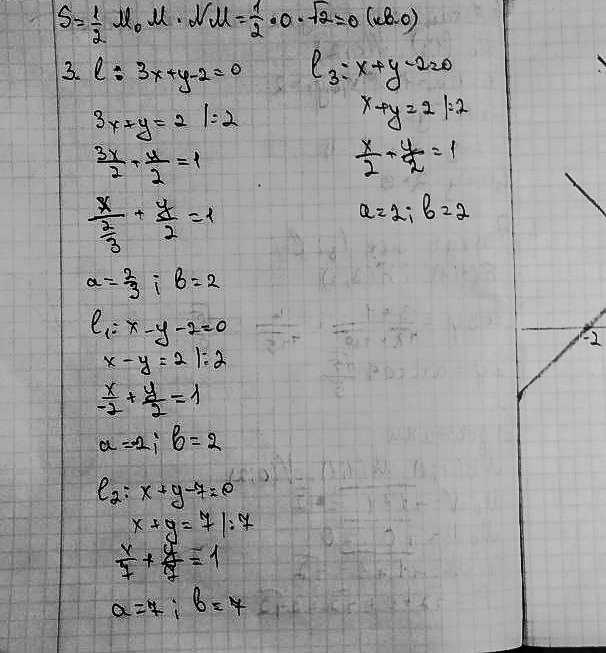 S=1/2 M₀M · NM = 1/2 · 0 · √2 = 0 (кв.о)
3. l: 3x+y-2=0
3x+y=2 |:2
3x/2 + y/2 = 1
x/(2/3) + y/2 = 1
a=2/3 ; b=2
l₁: x-y-2=0
x-y=2 |:2
x/-2 + y/2 = 1
a=-2; b=2
l₂: x+y-7=0
x+y=7 |:7
x/7 + y/7 = 1
a=7; b=7
l₃: x+y-2=0
x+y=2 |:2
x/2 + y/2 = 1
a=2; b=2
-2